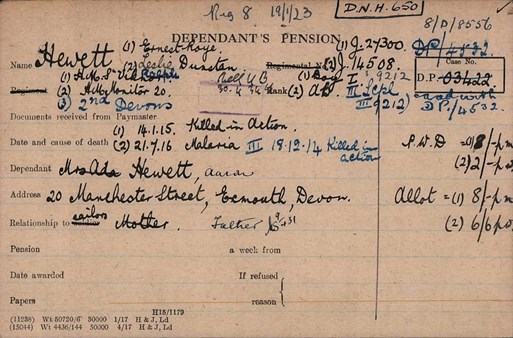 Reg 8 19/1/23
D.N.H. 650
8/D/8556
DEPENDANT'S PENSION.
D.P./4532
Name Hewett (1) Ernest (1) J. 27300.
(2) Leslie Dunstan Regimental No. (2) J/14508.
(3) Ralph III 9212
Case No.
D.P. 03422
cased with
D.P./4532.
Regiment (1) H.M.S. (2) H.M. Monitor 20. Rank (1) Boy I
(2) AB III L/Cpl
(3) 2nd Devons
Documents received from Paymaster
Date and cause of death (1) 14.1.15. Killed in Action.
(2) 21.7.16 Malaria III 18.12.14 Killed in action
Dependant Mrs Ada Hewett, Aaron
Address 20 Manchester Street, Exmouth, Devon.
Relationship to soldier sailors Mother. Father
(1) 8/- p.m
(2) 2/- p.m
Allot = (1) 8/- p.m
(2) 6/6
Pension a week from
Date awarded If refused
Papers reason
H18/1179
(11238) Wt 50720/6 30000 1/17 H & J, Ld
(15044) Wt 4436/144 50000 4/17 H & J, Ld